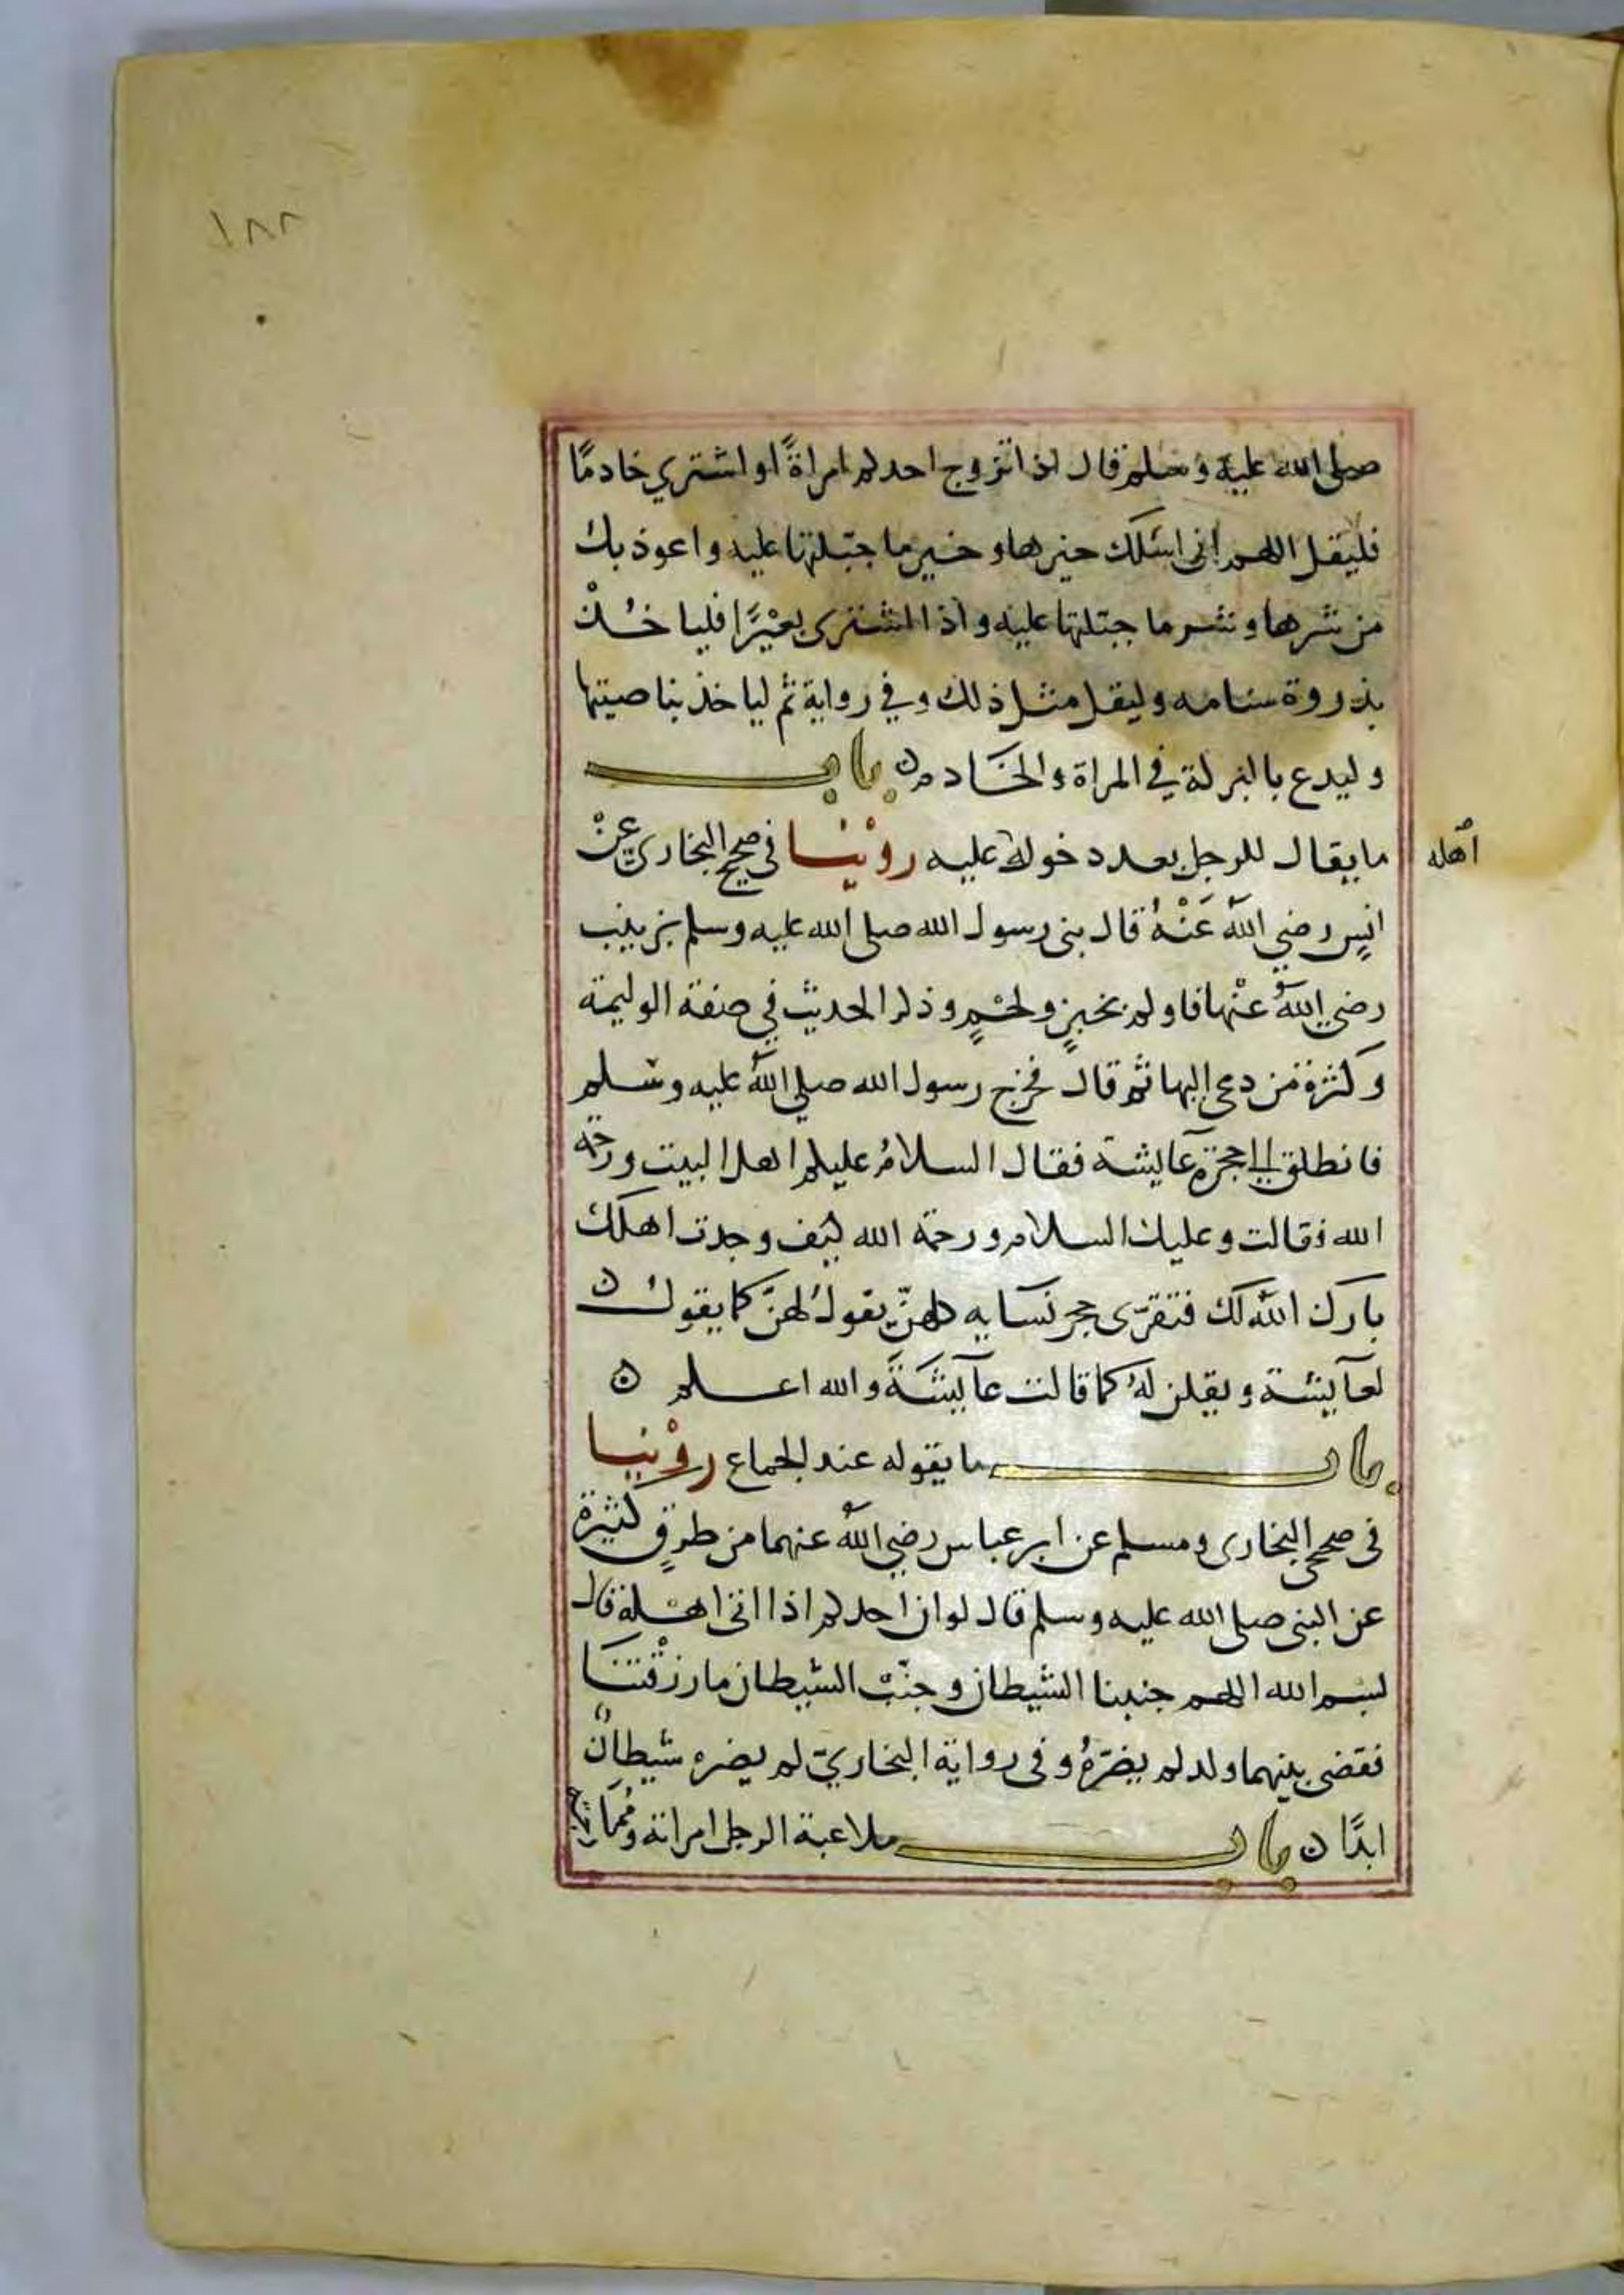 ١٨٨
صلى الله عليه وسلم قال اذا تزوج احدكم امراةً او اشتري خادمًا
فليقل اللهم انى اسئلك خيرها وخير ما جبلتها عليه واعوذ بك
من شرها وشر ما جبلتها عليه واذا اشترى بعيْرًا فلياخذ
بذروة سنامه وليقل مثل ذلك وفي رواية ثم لياخذ بناصيتها
وليدع بالبركة في المراة والخادم ن باب
ما يقال للرجل بعد دخوله عليه روْينا في صحيح البخاري عنْ
اهله
انسٍ رضي اللهُ عَنْهُ قال بنى رسول الله صلى الله عليه وسلم بزينب
رضي اللهُ عنْها فاولم بخبزٍ ولحْمٍ وذكر الحديث في صفة الوليمة
وكثرة من دعى اليها ثم قال فخرج رسول الله صلي اللهُ عليه وسلم
فانطلق الى حجرة عايشة فقال السلامُ عليكم اهل البيت ورحمة
الله فقالت وعليك السلام ورحمة الله كيف وجدت اهلك
بارك اللهُ لك فتقرّى حجر نسايه كلهنّ يقولُ لهنَّ كما يقول
لعآيشة ويقلن لهُ كما قالت عآيشةَ والله اعلم ن
باب ما يقوله عند الجماع روْينا
في صحيحي البخارى ومسلم عن ابن عباس رضي اللهُ عنهما من طرقٍ كثيرة
عن النبى صلى الله عليه وسلم قال لو ان احدكم اذا اتى اهله قال
بسم الله اللهم جنبنا الشيطان وجنّب الشيطان ما رزقتنا
فقضى بينهما ولد لم يضرّهُ وفى رواية البخاريّ لم يضره شيطانٌ
ابدًا ن باب ملاعبة الرجل امراته